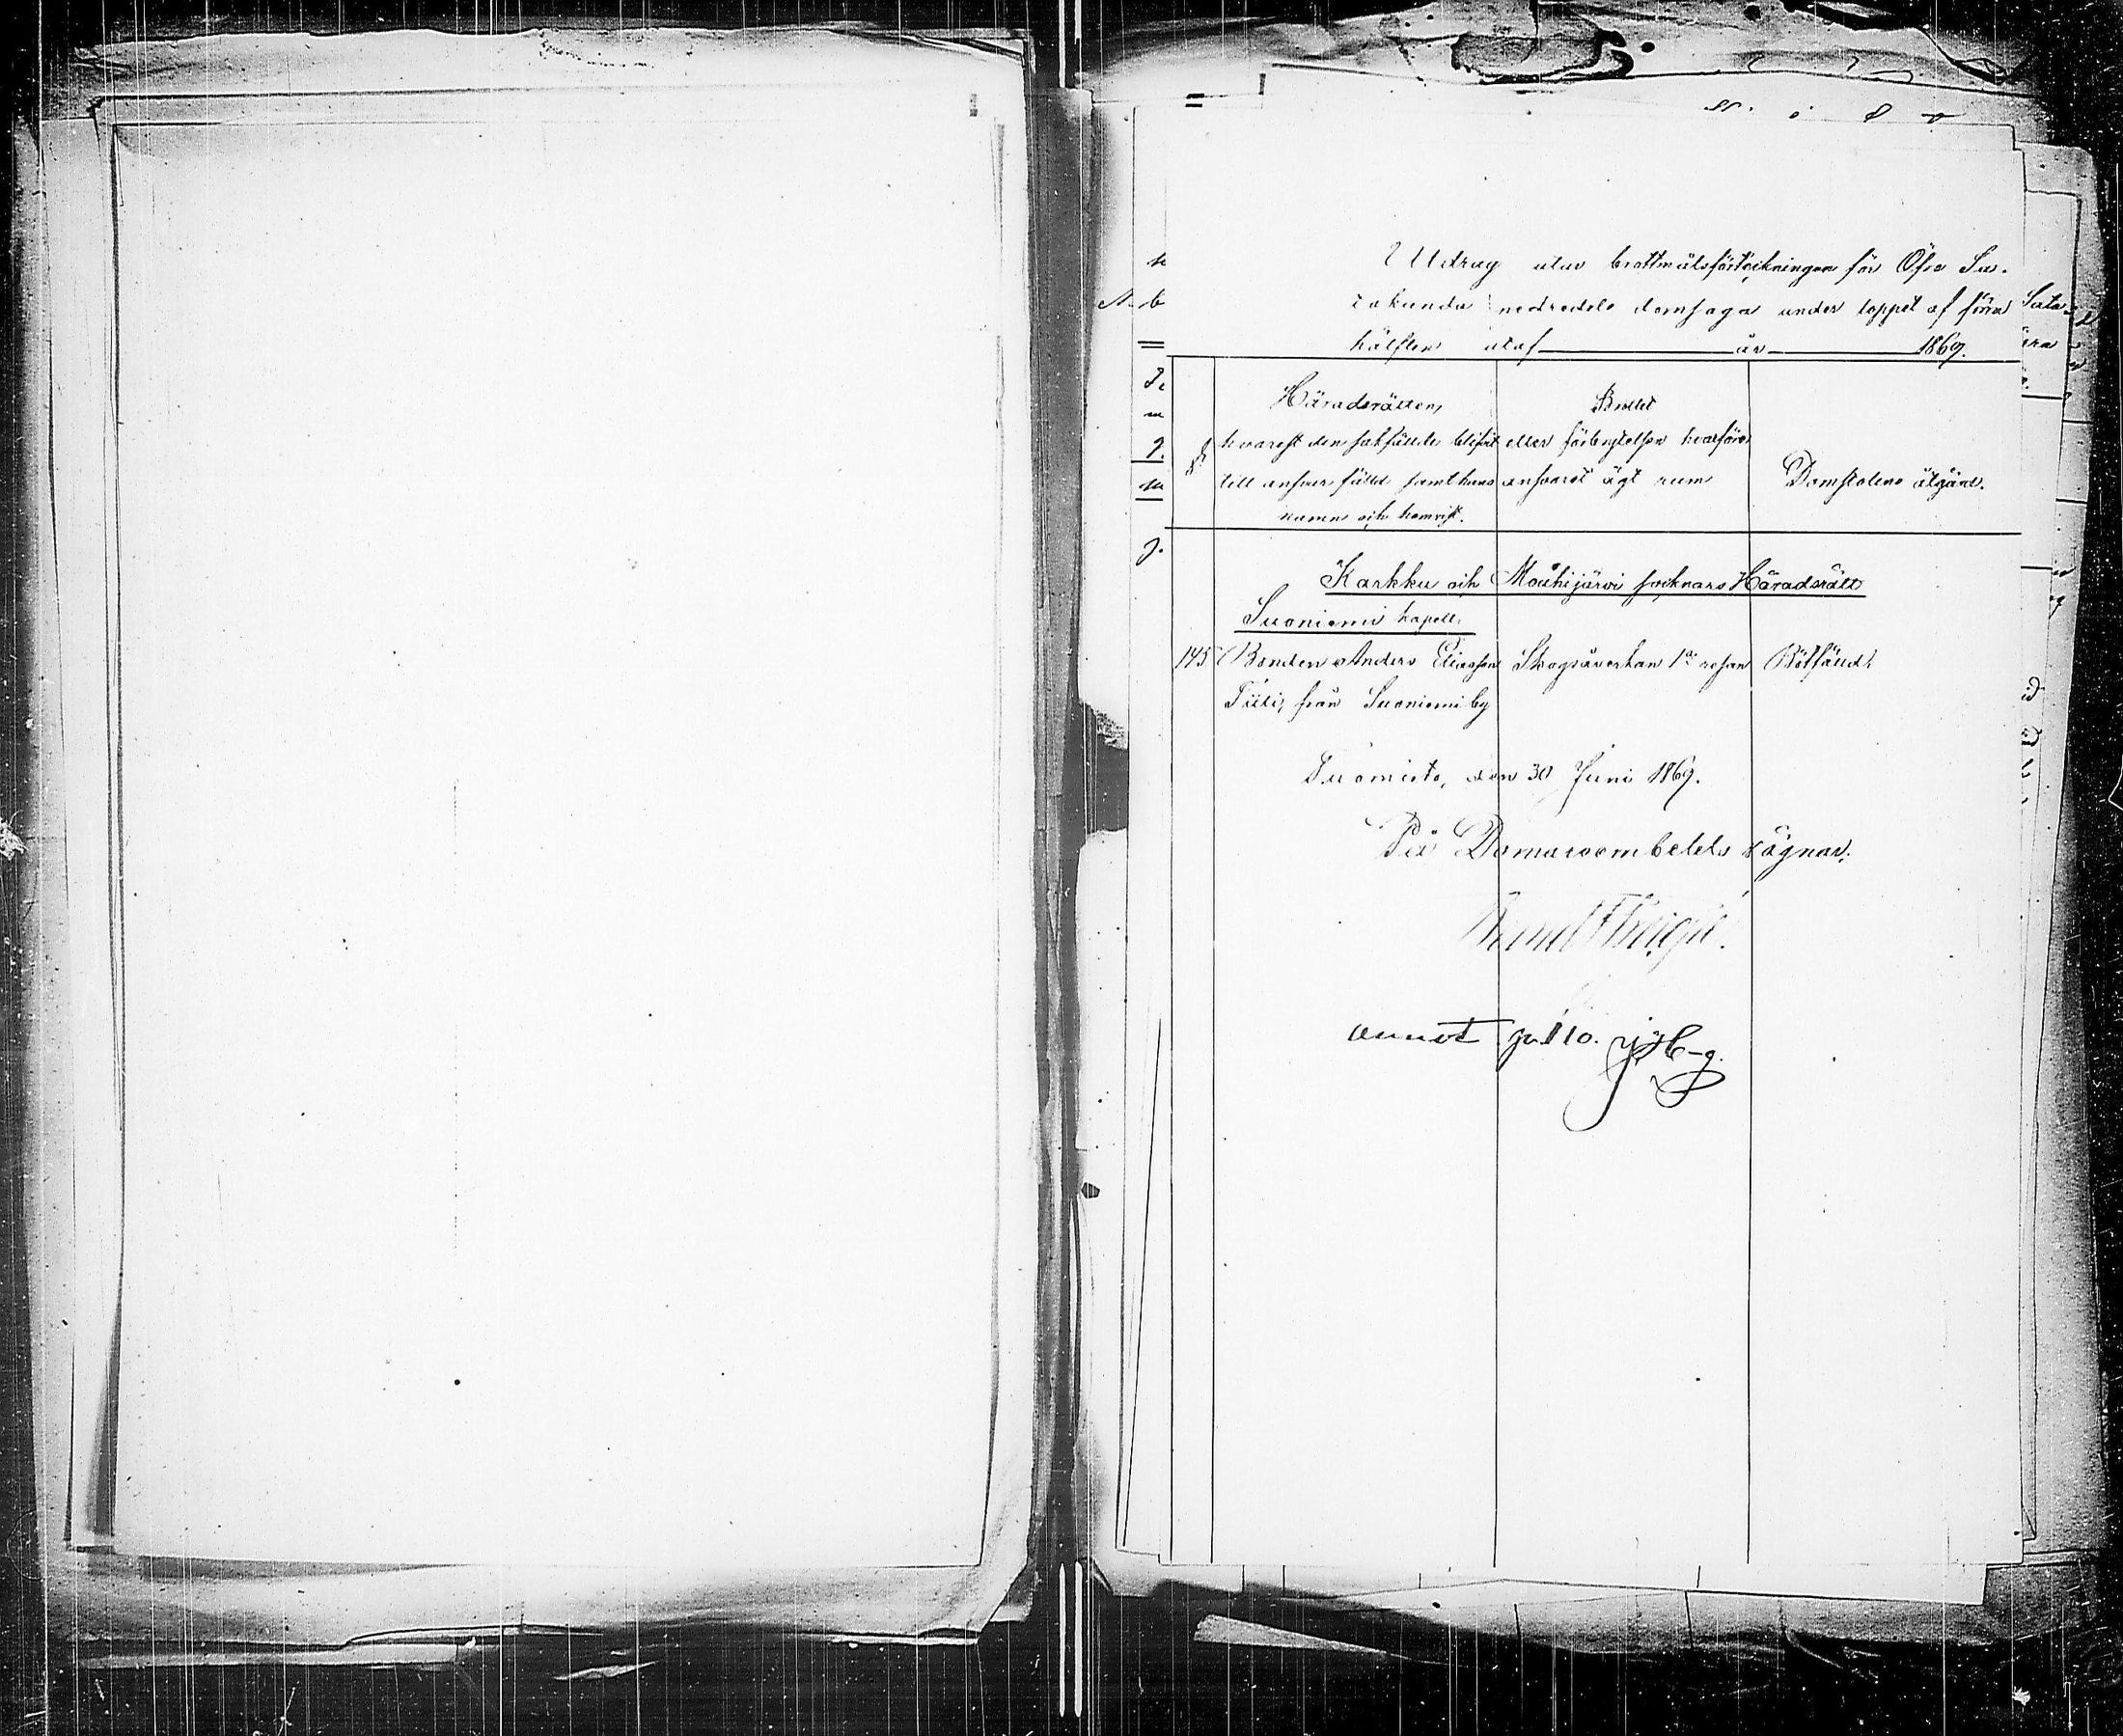 Utdrag utur brottmålsförteckningen för Öfre Sa-
takunda nedredels domsaga under loppet af förra
hälften utaf år 1869.
Häradsrätten, Brottet
hvarest den sakfällde blifvit eller förbrytelsen hvarföre
till ansvar fälld samt hans ansvaret ägt rum Domstolens åtgärd.
namn och hemvist.
Karkku och Mouhijärvi socknars Häradsrätt
Suoniemi kapell.
145 Bonden Anders Eliasson Skogsåverkan 1a resan Bötfälld.
Tiiti, från Suoniemi by
Tuomisto, den 30 Juni 1869.
På Domareembetets vägnar.
annot